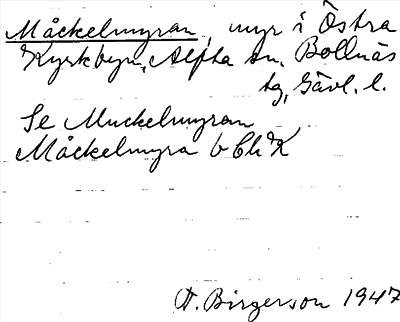 Måckelmyran, myr i Östra
Kyrkbyn, Alfta sn. Bollnäs
tg, Gävl. l.
Se Muckelmyran
Måckelmyra b
A. Birgerson 1947